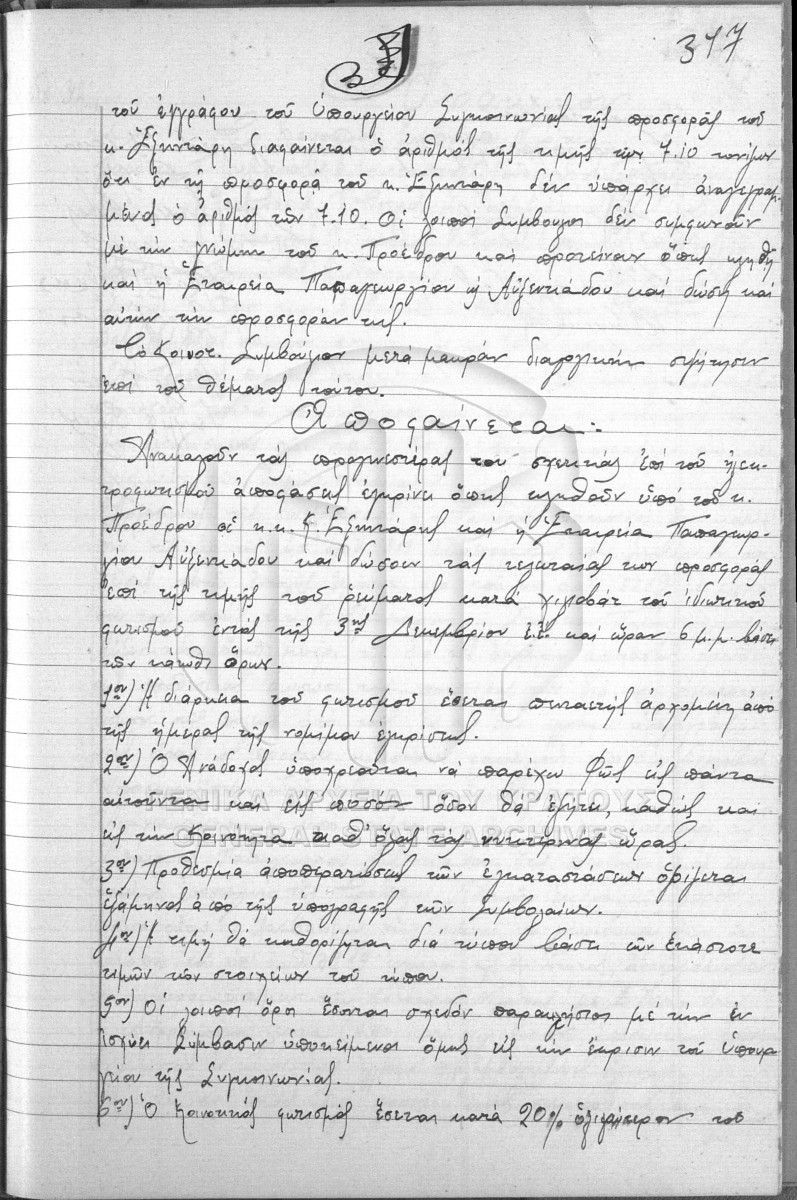 317
τοῦ ἐγγράφου τοῦ Ὑπουργείου Συγκοινωνίας τῆς προσφορᾶς τοῦ
κ. Ἐξηντάρη διαφαίνεται ὁ ἀριθμός τῆς τιμῆς τῶν 7.10 τονίζων
ὅτι ἐν τῇ προσφορᾷ τοῦ κ. Ἐξηντάρη δέν ὑπάρχει ἀναγεγραμ-
μένος ὁ ἀριθμός τῶν 7.10. Οἱ λοιποί Σύμβουλοι δέν συμφωνοῦν
μέ τήν γνώμην τοῦ κ. Προέδρου καί προτείνουν ὅπως κληθῇ
καί ἡ Ἑταιρεία Παπαγεωργίου Αὐξεντιάδου καί δώσῃ καί
αὐτήν τήν προσφοράν της.
Τό Κοινοτ. Συμβούλιον μετά μακράν διαλογικήν συζήτησιν
ἐπί τοῦ θέματος τούτου.
Ἀποφαίνεται:
Ἀνακαλοῦν τάς προγενεστέρας του σχετικάς ἐπί τοῦ ἠλεκ-
τροφωτισμοῦ ἀποφάσεις ἐγκρίνει ὅπως κληθοῦν ὑπό τοῦ κ.
Προέδρου οἱ κ.κ. Ἐξηντάρης καί ἡ Ἑταιρεία Παπαγεωρ-
γίου Αὐξεντιάδου καί δώσουν τάς τελευταίας των προσφοράς
ἐπί τῆς τιμῆς τοῦ ρεύματος κατά χιλιοβάτ τοῦ ἰδιωτικοῦ
φωτισμοῦ ἐντός τῆς 3ης Δεκεμβρίου ἐ.ἔ. καί ὥραν 6 μ.μ. βάσει
τῶν κάτωθι ὅρων.
1ον) Ἡ διάρκεια τοῦ φωτισμοῦ ἔσεται πενταετής ἀρχομένη ἀπό
τῆς ἡμέρας τῆς νομίμου ἐγκρίσεως.
2ον) Ὁ Ἀνάδοχος ὑποχρεοῦται νά παρέχῃ Φῶς εἰς πάντα
αἰτοῦντα καί εἰς ποσόν ὅσον θά ζητεῖ, καθώς καί
εἰς τήν Κοινότητα καθ' ὅλας τάς νυκτερινάς ὥρας.
ΓΕΝΙΚΑ ΑΡΧΕΙΑ ΤΟΥ ΚΡΑΤΟΥΣ
GENERAL STATE ARCHIVES
3ον) Προθεσμία ἀποπερατώσεως τῶν ἐγκαταστάσεων ὁρίζεται
ἑξάμηνος ἀπό τῆς ὑπογραφῆς τῶν Συμβολαίων.
4ον) Ἡ τιμή θά καθορίζηται διά τύπου βάσει τῶν ἑκάστοτε
τιμῶν τῶν στοιχείων τοῦ τύπου.
5ον) Οἱ λοιποί ὅροι ἔσονται σχεδόν παραπλήσιοι μέ τήν ἐν
ἰσχύει Σύμβασιν ὑποκείμενοι ὅμως εἰς τήν ἔγκρισιν τοῦ Ὑπουρ-
γείου τῆς Συγκοινωνίας.
6ον) Ὁ Κοινοτικός φωτισμός ἔσεται κατά 20% ὀλιγώτερον τοῦ